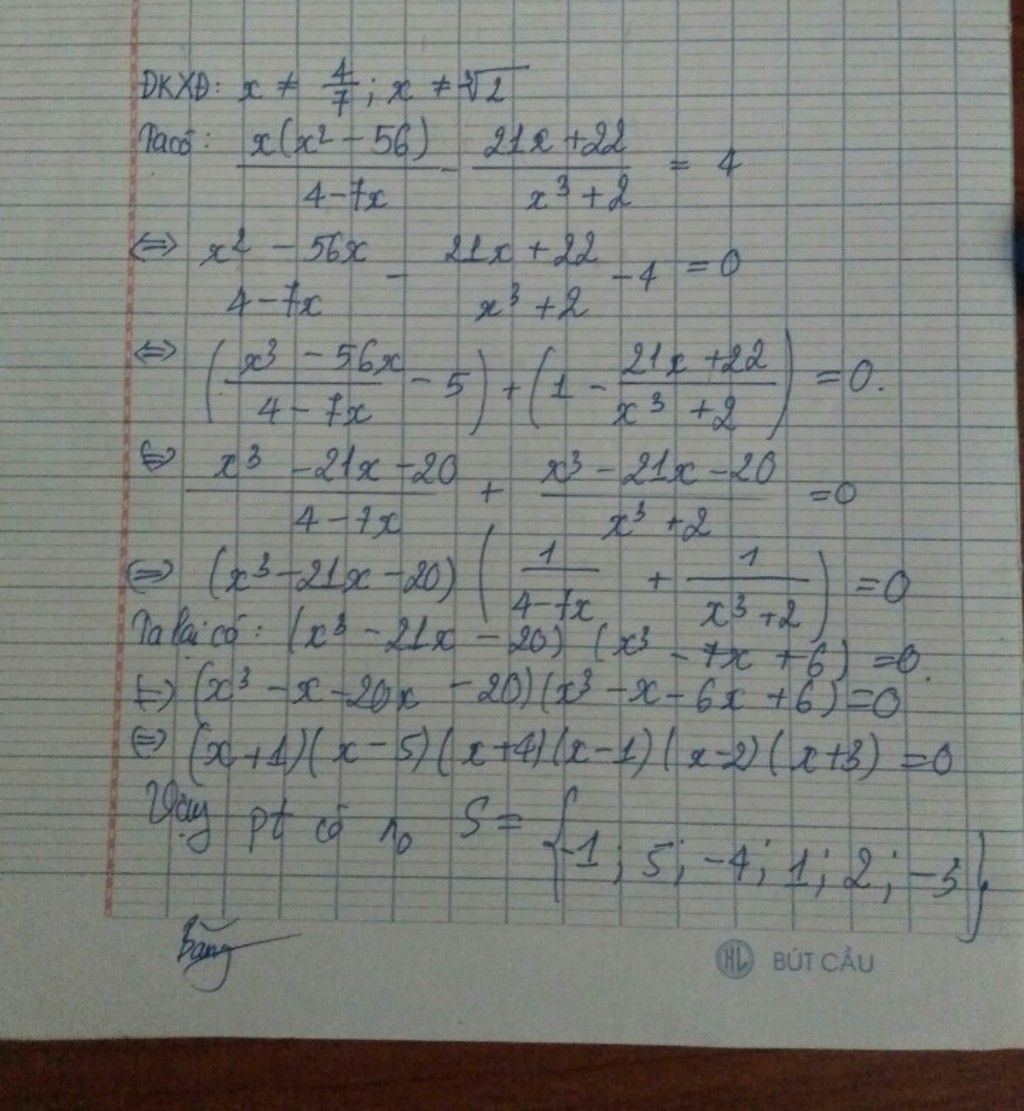 ĐKXĐ: x ≠ 4/7 ; x ≠ ∛2
Ta có: x(x² − 56)/(4−7x) − (21x+22)/(x³+2) = 4
⇔ x² − 56x/4−7x − 21x+22/x³+2 − 4 = 0
⇔ ((x³ − 56x)/(4−7x) − 5) + (1 − (21x+22)/(x³+2)) = 0.
⇔ (x³ −21x −20)/(4−7x) + (x³ −21x −20)/(x³+2) = 0
⇔ (x³−21x−20) (1/(4−7x) + 1/(x³+2)) = 0
Ta lại có: (x³ − 21x − 20) (x³ − 7x + 6) = 0.
⇔ (x³ − x − 20x − 20)(x³ − x − 6x + 6) = 0
⇔ (x+1)(x−5)(x+4)(x−1)(x−2)(x+3) = 0
Vậy pt có n₀ S = {−1; 5; −4; 1; 2; −3}
Bằng
HL BÚT CẦU